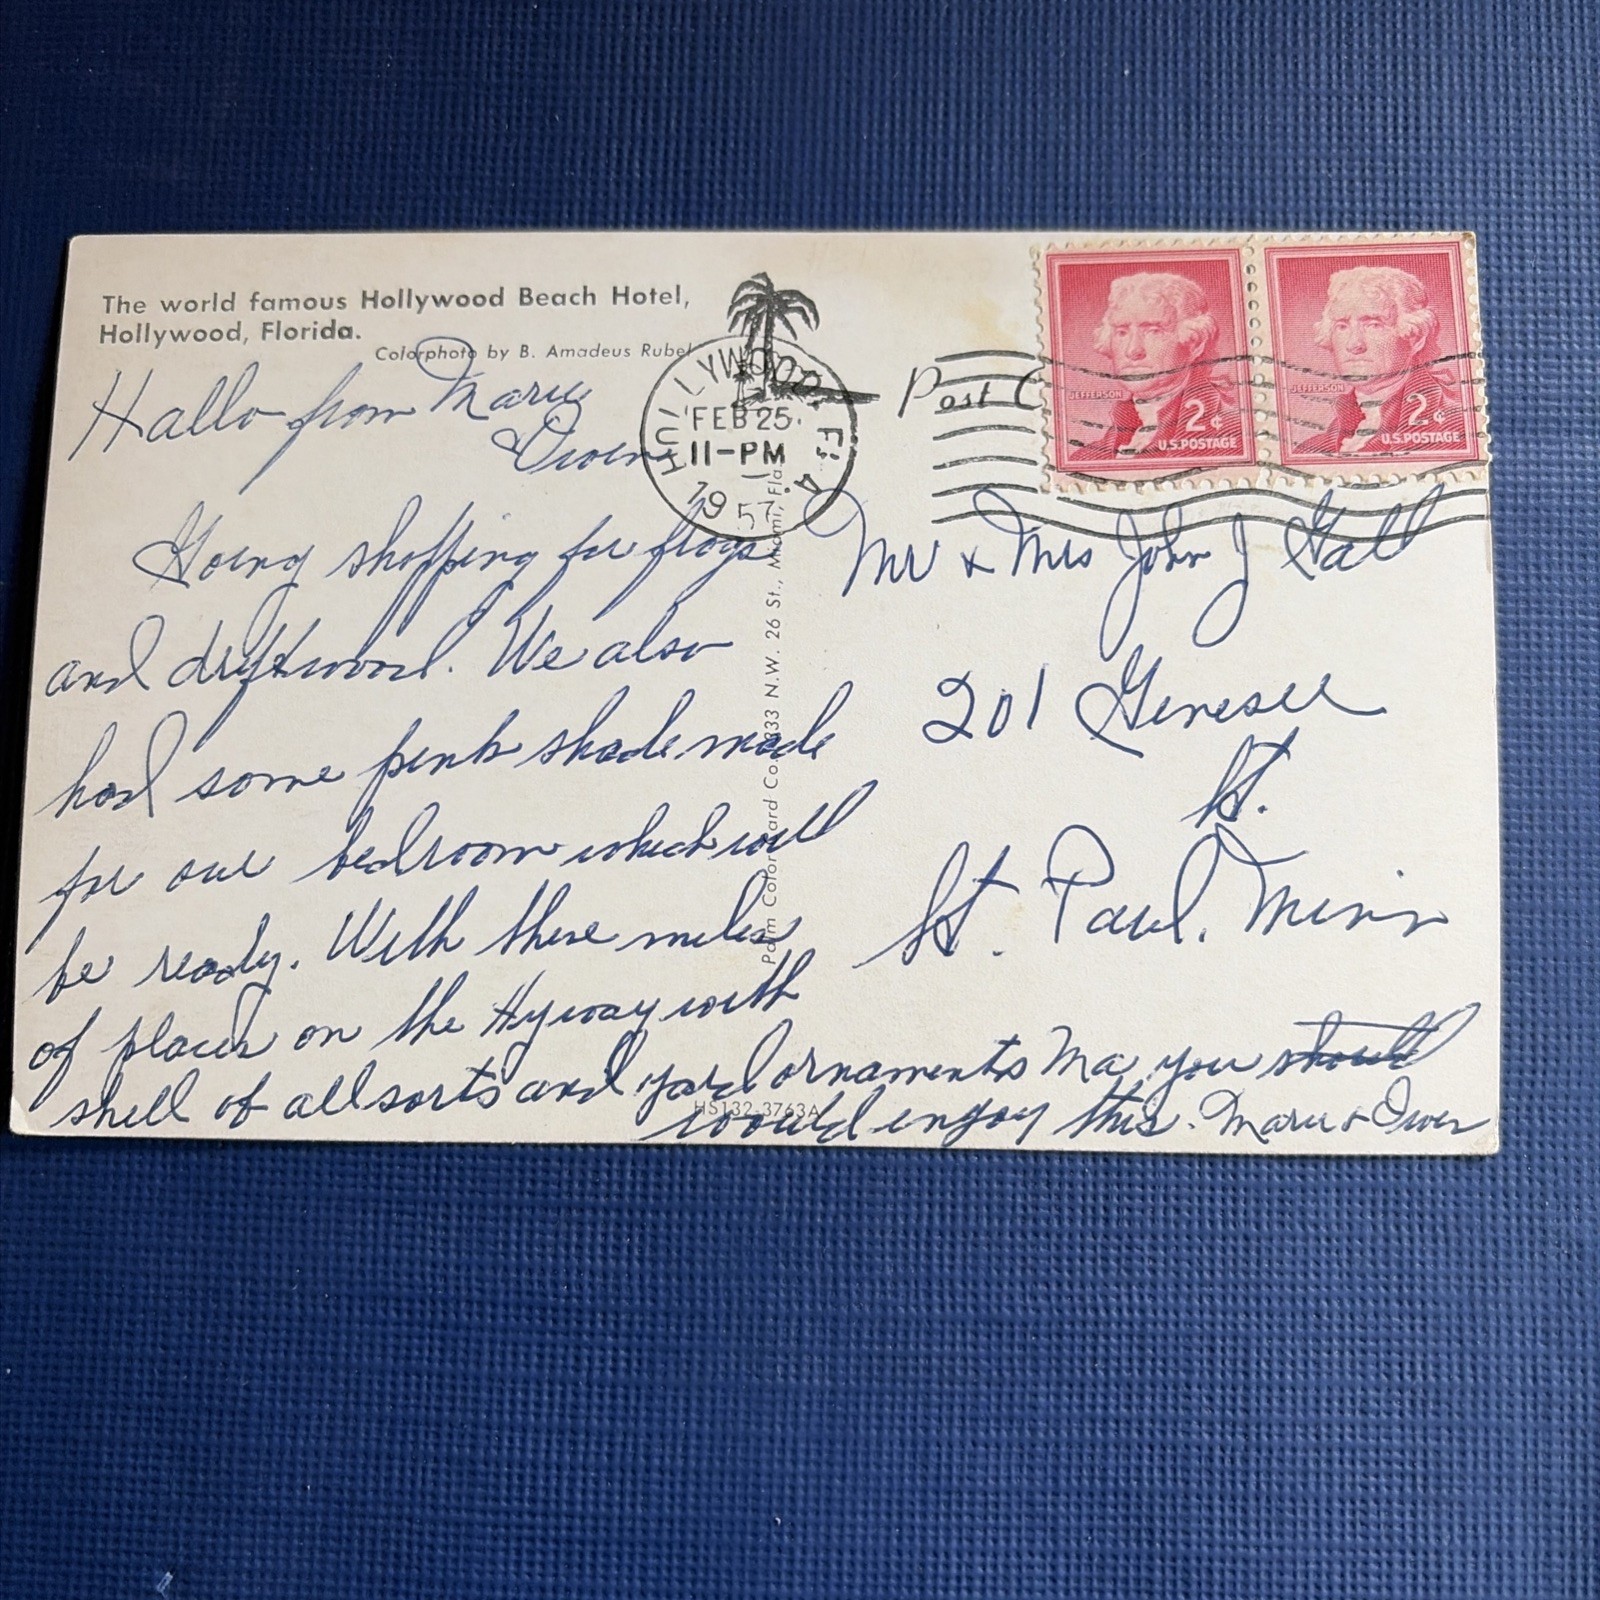 The world famous Hollywood Beach Hotel,
Hollywood, Florida.
Colorphoto by B. Amadeus Rubel
Hallo from Marie
Owen
Going shopping for frogs
and driftwood. We also
had some pink shade made
for our bedroom which will
be ready. With these miles
of places on the Hyway with
shell of all sorts and yard ornaments Ma you should
would enjoy this. Marie & Owen
HOLLYWOOD FLA
FEB 25
11-PM
1957
Post C
JEFFERSON
2¢
U.S. POSTAGE
JEFFERSON
2¢
U.S. POSTAGE
Mr & Mrs John J Gall
201 Genesee
St.
St. Paul, Minn
333 N.W. 26 St., Miami, Fla
HS132-3763A